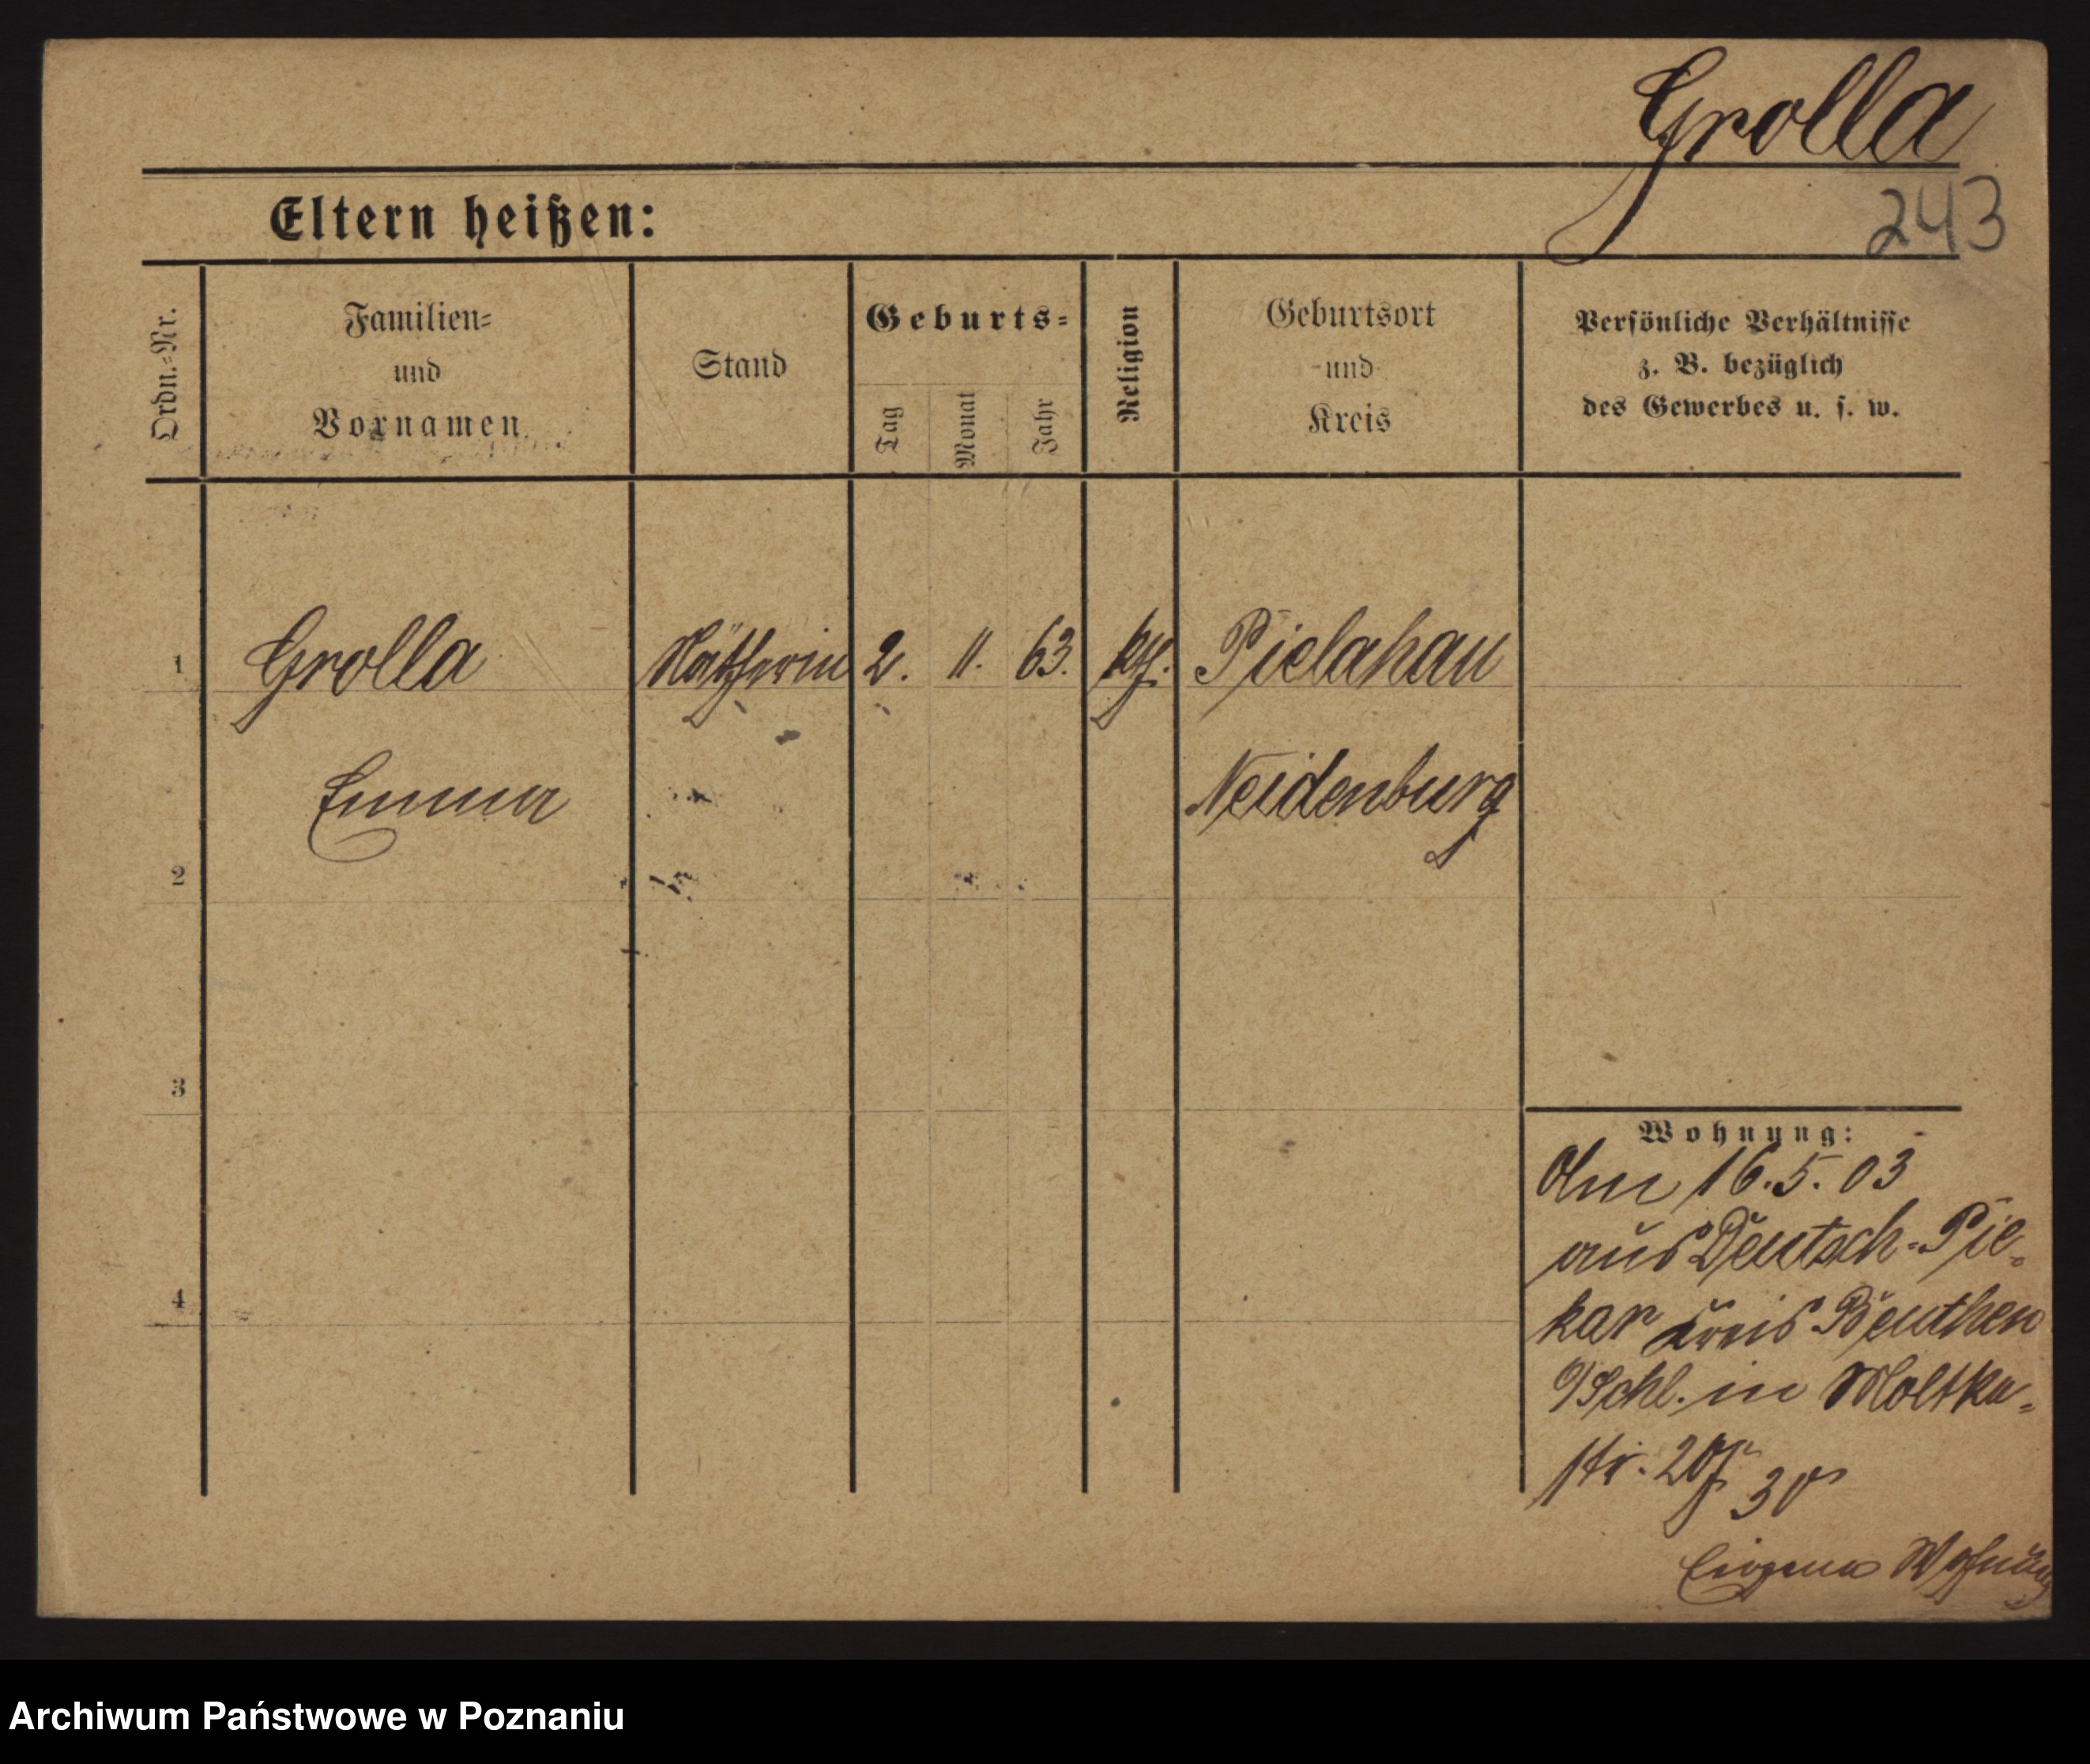 Grolla
243
Eltern heißen:
Ordn.-Nr.
Familien-
und
Vornamen
Stand
Geburts-
Tag
Monat
Jahr
Religion
Geburtsort
und
Kreis
Persönliche Verhältnisse
z. B. bezüglich
des Gewerbes u. s. w.
1 Grolla Nätherin 2. 11. 63. kth. Pielahau
Emma Neidenburg
2
3
4
Wohnung:
Am 16.5.03
aus Deutsch-Pie-
kar Kreis Beuthen
O/Schl. in Moltke-
str. 20
Eigene Wohnung
Archiwum Państwowe w Poznaniu